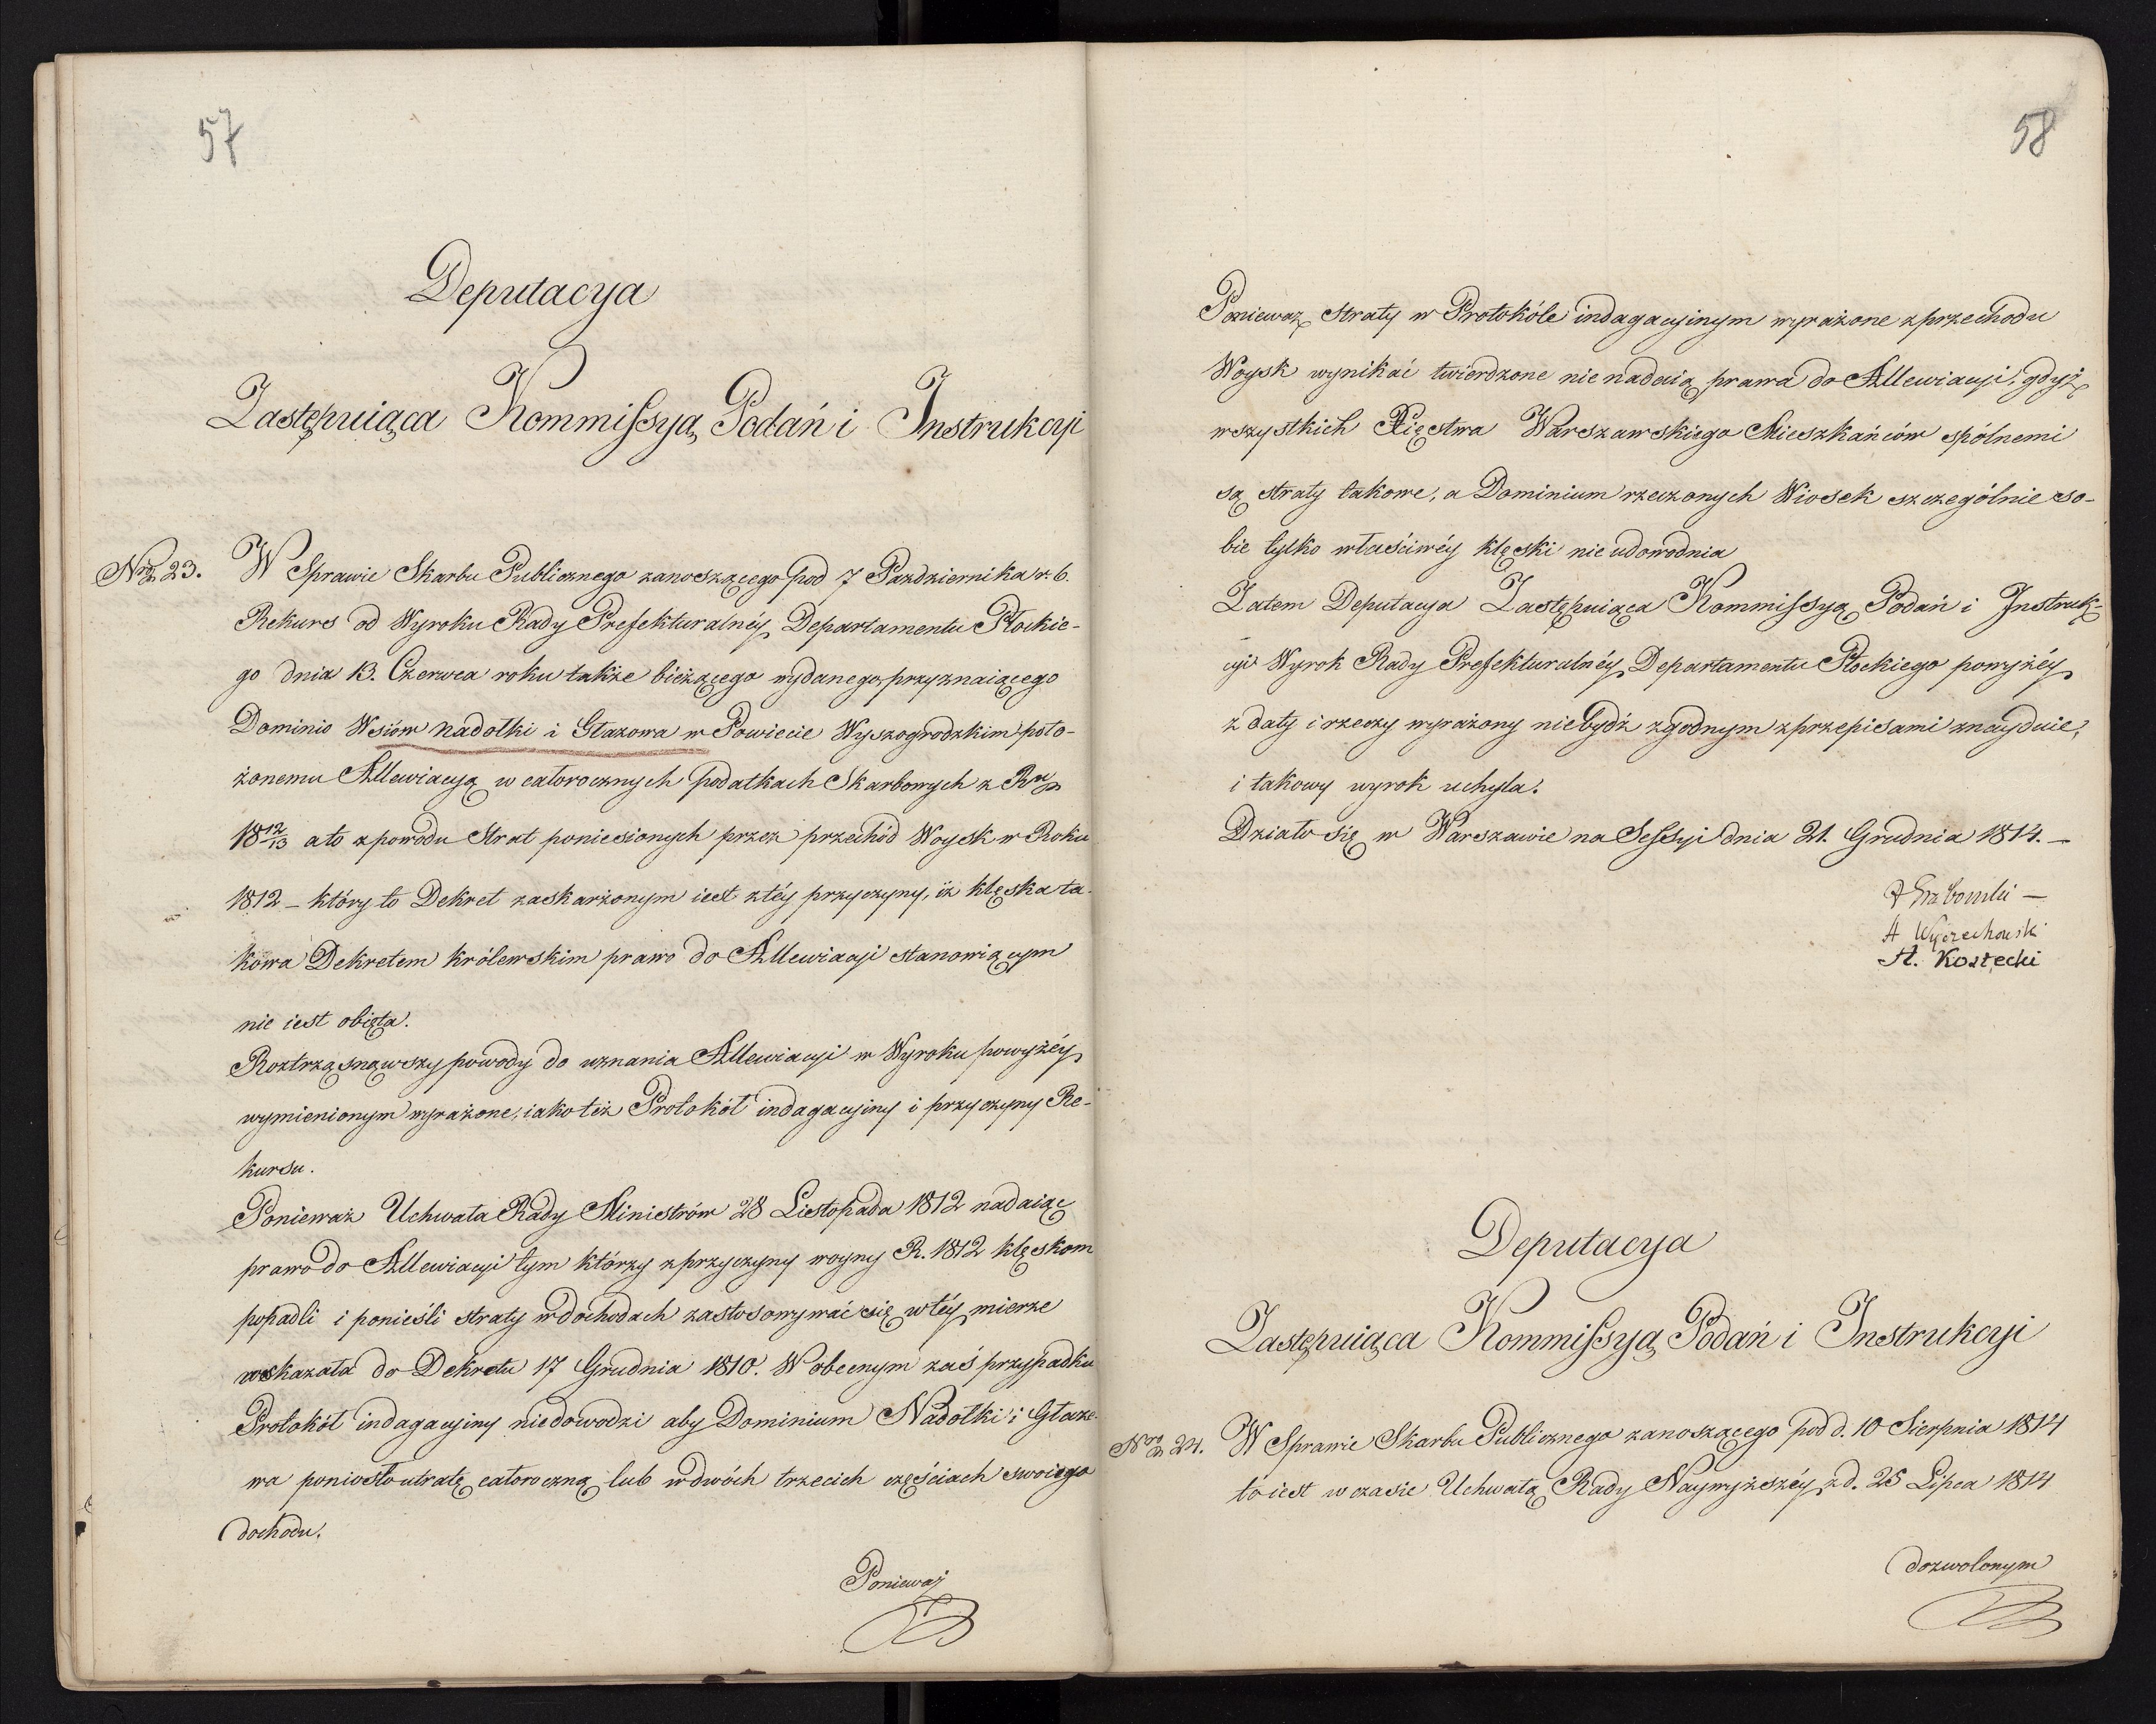 57
Deputacya
Zastępuiąca Kommissyą Podań i Instrukcyi
Nro 23. W Sprawie Skarbu Publicznego zanoszącego pod 7 Pazdziernika r. b.
Rekurs od Wyroku Rady Prefekturalnéy Departamentu Płockie-
go dnia 13. Czerwca roku także bieżącego wydanego, przyznaiącego
Dominio Wsiów Nadołki i Głazowa w Powiecie Wyszogrodzkim poło-
żonemu Allewiacyą w całorocznych podatkach Skarbowych z Rku
18 12/13 a to z powodu Strat poniesionych przez przechód Woysk w Roku
1812 – który to Dekret zaskarżonym iest z téy przyczyny, iż klęska ta-
kowa Dekretem królewskim prawo do Allewiacyi stanowiącym
nie iest obięta.
Roztrząsnąwszy powody do uznania Allewiacyi w Wyroku powyżéy
wymienionym wyrażone, iako też Protokół indagacyiny i przyczyny Re-
kursu.
Ponieważ Uchwała Rady Ministrów 28 Listopada 1812 nadaiąc
prawo do Allewiacyi tym którzy z przyczyny woyny R. 1812 klęskom
popadli i ponieśli straty w dochodach zastosowywać się w téy mierze
wskazała do Dekretu 17 Grudnia 1810. W obecnym zaś przypadku
Protokół indagacyiny niedowodzi aby Dominium Nadołki i Głazo-
wa poniosło utratę całoroczną lub w dwóch trzecich częściach swoiego
dochodu.
Ponieważ
58
Ponieważ straty w Protokóle indagacyinym wyrażone z przechodu
Woysk wynikać twierdzone nie nadaią prawa do Allewiacyi, gdyż
wszystkich Xięstwa Warszawskiego Mieszkańców spólnemi
są straty takowe, a Dominium rzeczonych Wiosek szczególnie so-
bie tylko właściwéy klęski nie udowodnia
Zatem Deputacya Zastępuiąca Kommissyą Podań i Instruk-
cyi Wyrok Rady Prefekturalnéy Departamentu Płockiego powyżéy
z daty i rzeczy wyrażony niebydź zgodnym z przepisami znayduie,
i takowy wyrok uchyla.
Działo się w Warszawie na Sessyi dnia 21. Grudnia 1814. –
Grabowski –
A Wyczechowski
A. Kozłecki
Deputacya
Zastępuiąca Kommissyą Podań i Instrukcyi
Nro 24. W Sprawie Skarbu Publicznego zanoszącego pod d. 10 Sierpnia 1814
to iest w czasie Uchwałą Rady Naywyższéy z d. 25 Lipca 1814
dozwolonym